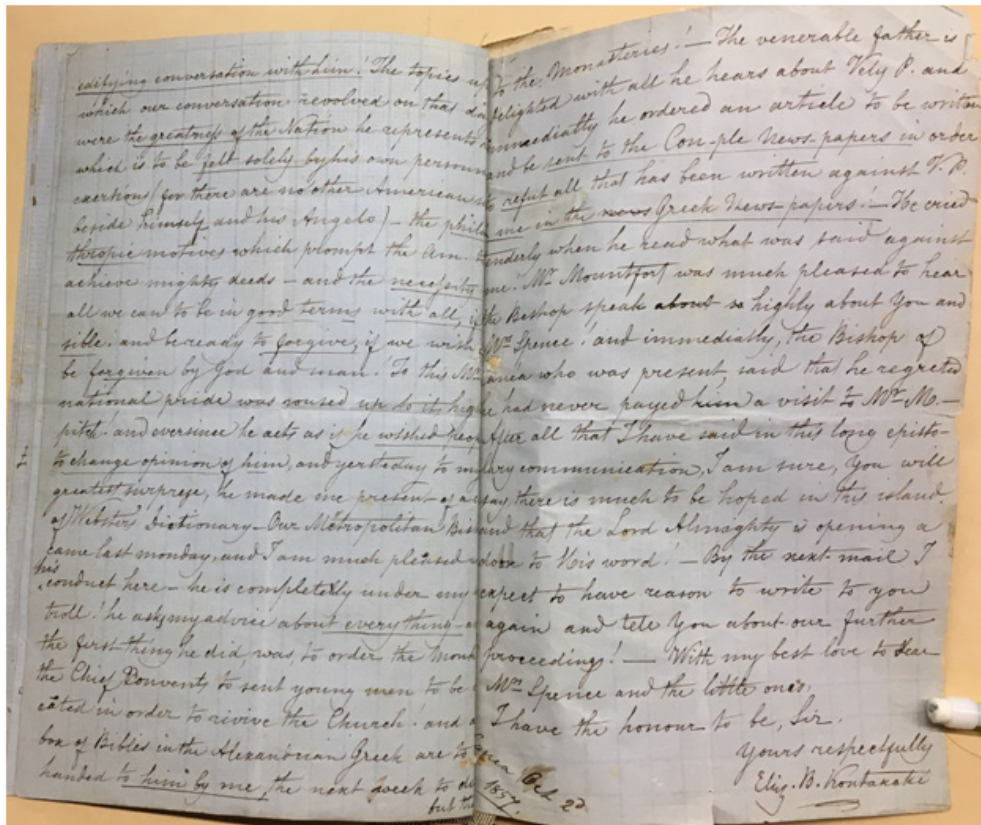 edifying conversation with him! The topics up
which our conversation revolved on that da
were the greatness of the Nation he represents
which is to be felt solely by his own person
exertions (for there are no other Americans
beside himself and his Angelo) – the phila
thropic motives which prompt the Am. to
achieve mighty deeds – and the necessity
all we can to be in good terms with all,
sible. and be ready to forgive, if we wish
be forgiven by God and man! To this Mr
national pride was roused up to its highe
pitch. and eversince he acts as if he wished peop
to change opinion of him, and yersteday to my
greatest surprese, he made me present of a
of Webster's Dictionary – Our Metropolitan Bis
came last monday, and I am much pleased
his
conduct here – he is completely under my
troll! he asks my advice about every thing –
the first thing he did, was, to order the Mona
the Chief Convents to sent young men to be
cated in order to rivive the Church! and a
box of Bibles in the Alexandrian Greek are to
handed to him by me, the next week to di
but the
to the Monasteries! – The venerable father is
delighted with all he hears about Vely P. and
immediatly he ordered an article to be written
and be sent to the Con-ple News-papers in order
to refut all that has been written against V. P.
me in the news Greek News-papers! – He cried
tenderly when he read what was said against
me. Mr Mountfort was much pleased to hear
the Bishop speak about so highly about You and
Mrs Spence! and immediatly, the Bishop of
who was present, said that he regreted
he had never payed him a visit to Mr M. –
After all that I have said in this long episto-
lary communication, I am sure, You will
say, there is much to be hoped in this island
and that the Lord Almaghty is opening a
door to His word! – By the next mail I
expect to have reason to write to you
again and tell You about our further
proceedings! — With my best love to Dear
Mrs Spence and the little ones,
I have the honour to be, Sir.
Yours respectfully
Eliz. B. Kontaxaki
Canea Oct 2d
1857.